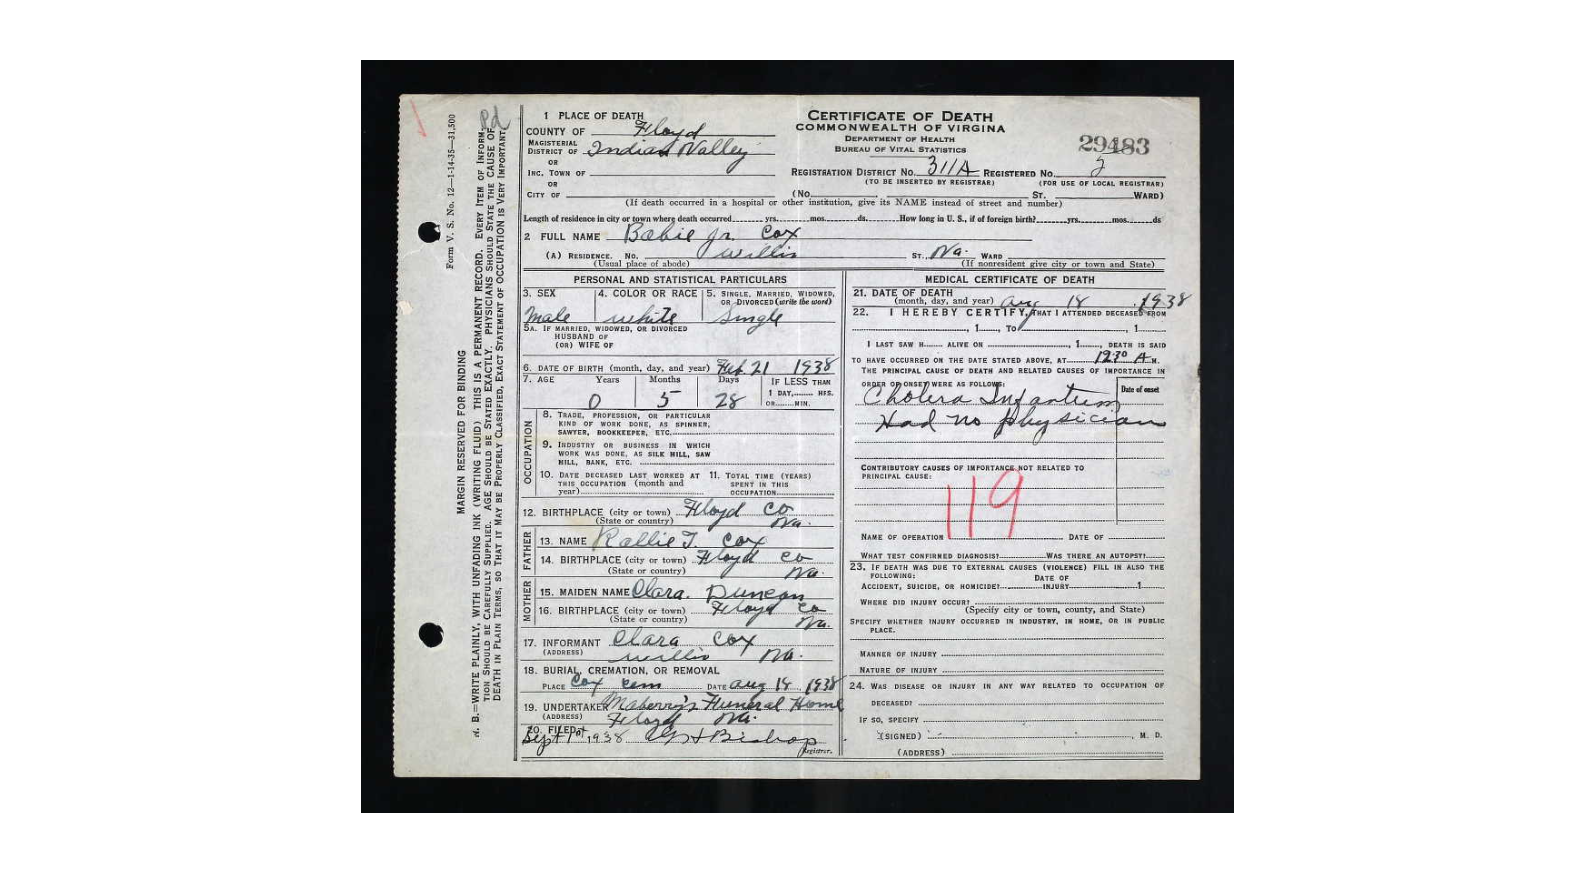 Form V. S. No. 12—1-14-35—31,500
MARGIN RESERVED FOR BINDING
N. B.—WRITE PLAINLY, WITH UNFADING INK (WRITING FLUID) THIS IS A PERMANENT RECORD. EVERY ITEM OF INFORM-
TION SHOULD BE CAREFULLY SUPPLIED. AGE SHOULD BE STATED EXACTLY. PHYSICIANS SHOULD STATE THE CAUSE OF
DEATH IN PLAIN TERMS, SO THAT IT MAY BE PROPERLY CLASSIFIED. EXACT STATEMENT OF OCCUPATION IS VERY IMPORTANT.
Pd
1 PLACE OF DEATH
COUNTY OF Floyd
MAGISTERIAL
DISTRICT OF Indian Valley
OR
INC. TOWN OF
OR
CITY OF
CERTIFICATE OF DEATH
COMMONWEALTH OF VIRGINIA
DEPARTMENT OF HEALTH
BUREAU OF VITAL STATISTICS
29483
REGISTRATION DISTRICT NO. 311A REGISTERED NO. 2
(TO BE INSERTED BY REGISTRAR) (FOR USE OF LOCAL REGISTRAR)
(No. ST. WARD)
(If death occurred in a hospital or other institution, give its NAME instead of street and number)
Length of residence in city or town where death occurred yrs. mos. ds. How long in U. S., if of foreign birth? yrs. mos. ds
2 FULL NAME Babie Jr. Cox
(A) RESIDENCE. No. Willis ST., Va. WARD
(Usual place of abode) (If nonresident give city or town and State)
PERSONAL AND STATISTICAL PARTICULARS
3. SEX 4. COLOR OR RACE 5. SINGLE, MARRIED, WIDOWED,
OR DIVORCED (write the word)
male white Single
5A. IF MARRIED, WIDOWED, OR DIVORCED
HUSBAND OF
(OR) WIFE OF
6. DATE OF BIRTH (month, day, and year) Feb. 21 1938
7. AGE Years Months Days IF LESS THAN
1 DAY, HRS.
OR MIN.
0 5 28
OCCUPATION
8. TRADE, PROFESSION, OR PARTICULAR
KIND OF WORK DONE, AS SPINNER,
SAWYER, BOOKKEEPER, ETC.
9. INDUSTRY OR BUSINESS IN WHICH
WORK WAS DONE, AS SILK MILL, SAW
MILL, BANK, ETC.
10. DATE DECEASED LAST WORKED AT 11. TOTAL TIME (YEARS)
THIS OCCUPATION (month and SPENT IN THIS
year) OCCUPATION
12. BIRTHPLACE (city or town) Floyd Co
(State or country) Va.
FATHER
13. NAME Rallie T. Cox
14. BIRTHPLACE (city or town) Floyd Co
(State or country) Va.
MOTHER
15. MAIDEN NAME Clara. Duncan
16. BIRTHPLACE (city or town) Floyd Co
(State or country) Va.
17. INFORMANT Clara Cox
(ADDRESS) Willis Va.
18. BURIAL, CREMATION, OR REMOVAL
PLACE Cox Cem DATE Aug 19 1938
19. UNDERTAKER Maberry's Funeral Home
(ADDRESS) Floyd Va.
20. FILED
Sept 1st 1938 Bishop
Registrar.
MEDICAL CERTIFICATE OF DEATH
21. DATE OF DEATH
(month, day, and year) Aug 18, 1938
22. I HEREBY CERTIFY, THAT I ATTENDED DECEASED FROM
, 1 , TO , 1
I LAST SAW H ALIVE ON , 1 , DEATH IS SAID
TO HAVE OCCURRED ON THE DATE STATED ABOVE, AT 12:30 A M.
THE PRINCIPAL CAUSE OF DEATH AND RELATED CAUSES OF IMPORTANCE IN
ORDER OF ONSET WERE AS FOLLOWS: Date of onset
Cholera Infantum
Had no physician
CONTRIBUTORY CAUSES OF IMPORTANCE NOT RELATED TO
PRINCIPAL CAUSE:
119
NAME OF OPERATION DATE OF
WHAT TEST CONFIRMED DIAGNOSIS? WAS THERE AN AUTOPSY?
23. IF DEATH WAS DUE TO EXTERNAL CAUSES (VIOLENCE) FILL IN ALSO THE
FOLLOWING: DATE OF
ACCIDENT, SUICIDE, OR HOMICIDE? INJURY 1
WHERE DID INJURY OCCUR?
(Specify city or town, county, and State)
SPECIFY WHETHER INJURY OCCURRED IN INDUSTRY, IN HOME, OR IN PUBLIC
PLACE.
MANNER OF INJURY
NATURE OF INJURY
24. WAS DISEASE OR INJURY IN ANY WAY RELATED TO OCCUPATION OF
DECEASED?
IF SO, SPECIFY
(SIGNED) , M. D.
(ADDRESS)